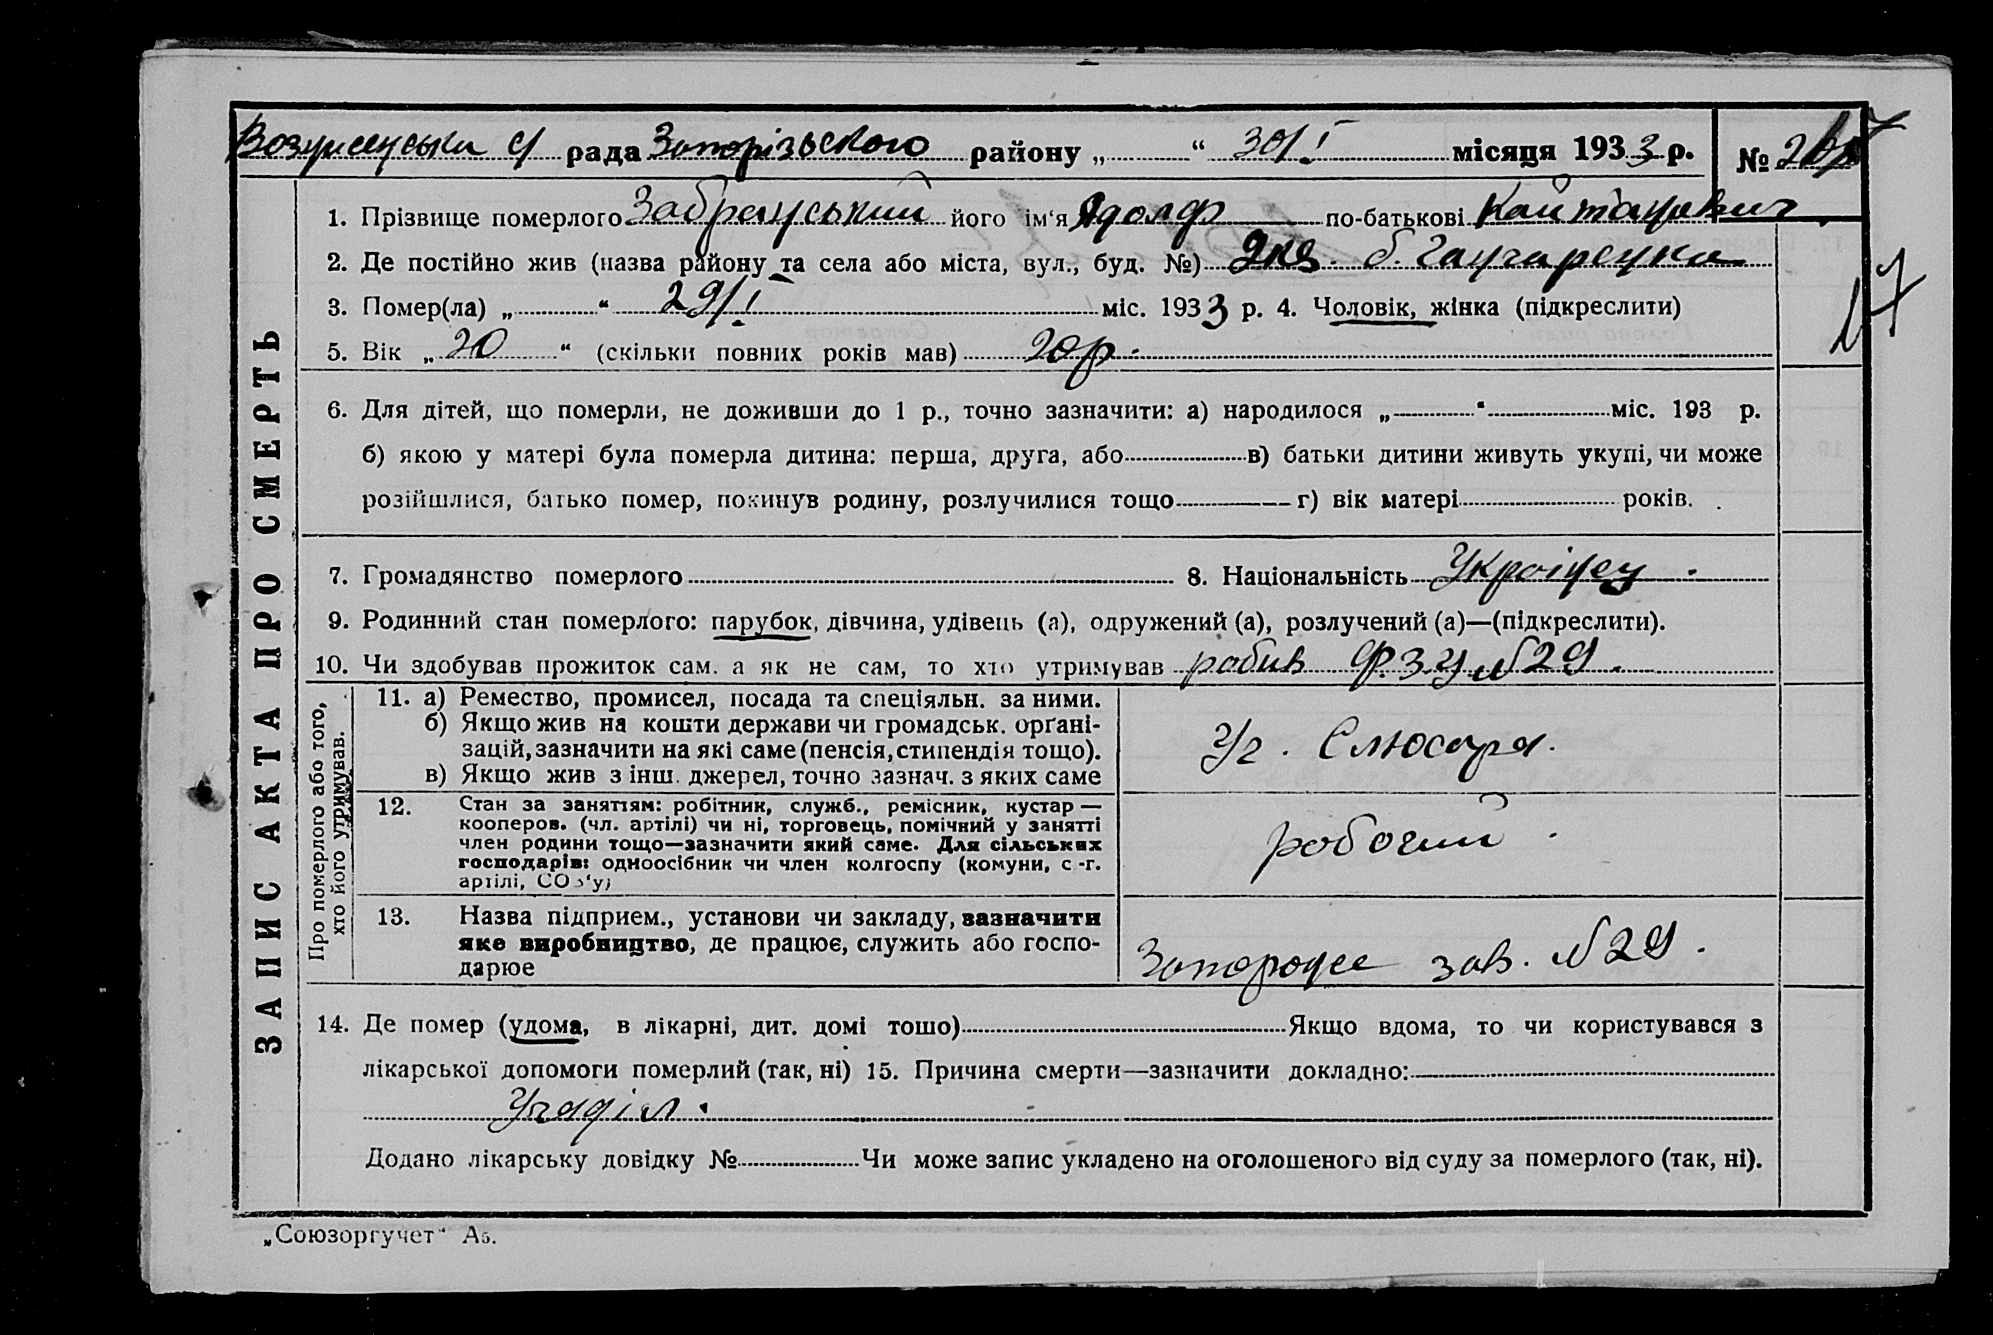 Вознесенська с/ рада Запорізького району „ “ 30/I місяця 1933 р. №
1. Прізвище померлого його ім‘я Адольф по-батькові
2. Де постійно жив (назва району та села або міста, вул., буд. №)
3. Помер(ла) „ “ 29/I міс. 1933 р. 4. Чоловік, жінка (підкреслити)
17
5. Вік „ 20 “ (скільки повних років мав) 20 р.
6. Для дітей, що померли, не доживши до 1 р., точно зазначити: а) народилося „ “ міс. 193 р.
б) якою у матері була померла дитина: перша, друга, або в) батьки дитини живуть укупі, чи може
розійшлися, батько помер, покинув родину, розлучилися тощо г) вік матері років.
7. Громадянство померлого 8. Національність Українец
9. Родинний стан померлого: парубок, дівчина, удівець (а), одружений (а), розлучений (а)—(підкреслити).
10. Чи здобував прожиток сам. а як не сам, то хто утримував робив Ф.З.У №29.
ЗАПИС АКТА ПРО СМЕРТЬ
Про померлого або того, хто його утримував.
11. а) Ремество, промисел, посада та спеціяльн. за ними.
б) Якщо жив на кошти держави чи громадськ. орґані-
зацій, зазначити на які саме (пенсія, стипендія тощо).
в) Якщо жив з інш. джерел, точно зазнач. з яких саме
Уч. Слюсаря.
12. Стан за заняттям: робітник, служб., ремісник, кустар —
кооперов. (чл. артілі) чи ні, торговець, помічний у занятті
член родини тощо—зазначити який саме. Для сільських
господарів: одноосібник чи член колгоспу (комуни, с.-г.
артілі, СОЗ‘у)
робочий
13. Назва підприєм., установи чи закладу, зазначити
яке виробництво, де працює, служить або госпо-
дарює
зав. №29.
14. Де помер (удома, в лікарні, дит. домі тошо) Якщо вдома, то чи користувався з
лікарської допомоги померлий (так, ні) 15. Причина смерти—зазначити докладно:
Додано лікарську довідку № Чи може запис укладено на оголошеного від суду за померлого (так, ні).
„Союзоргучет“ А5.